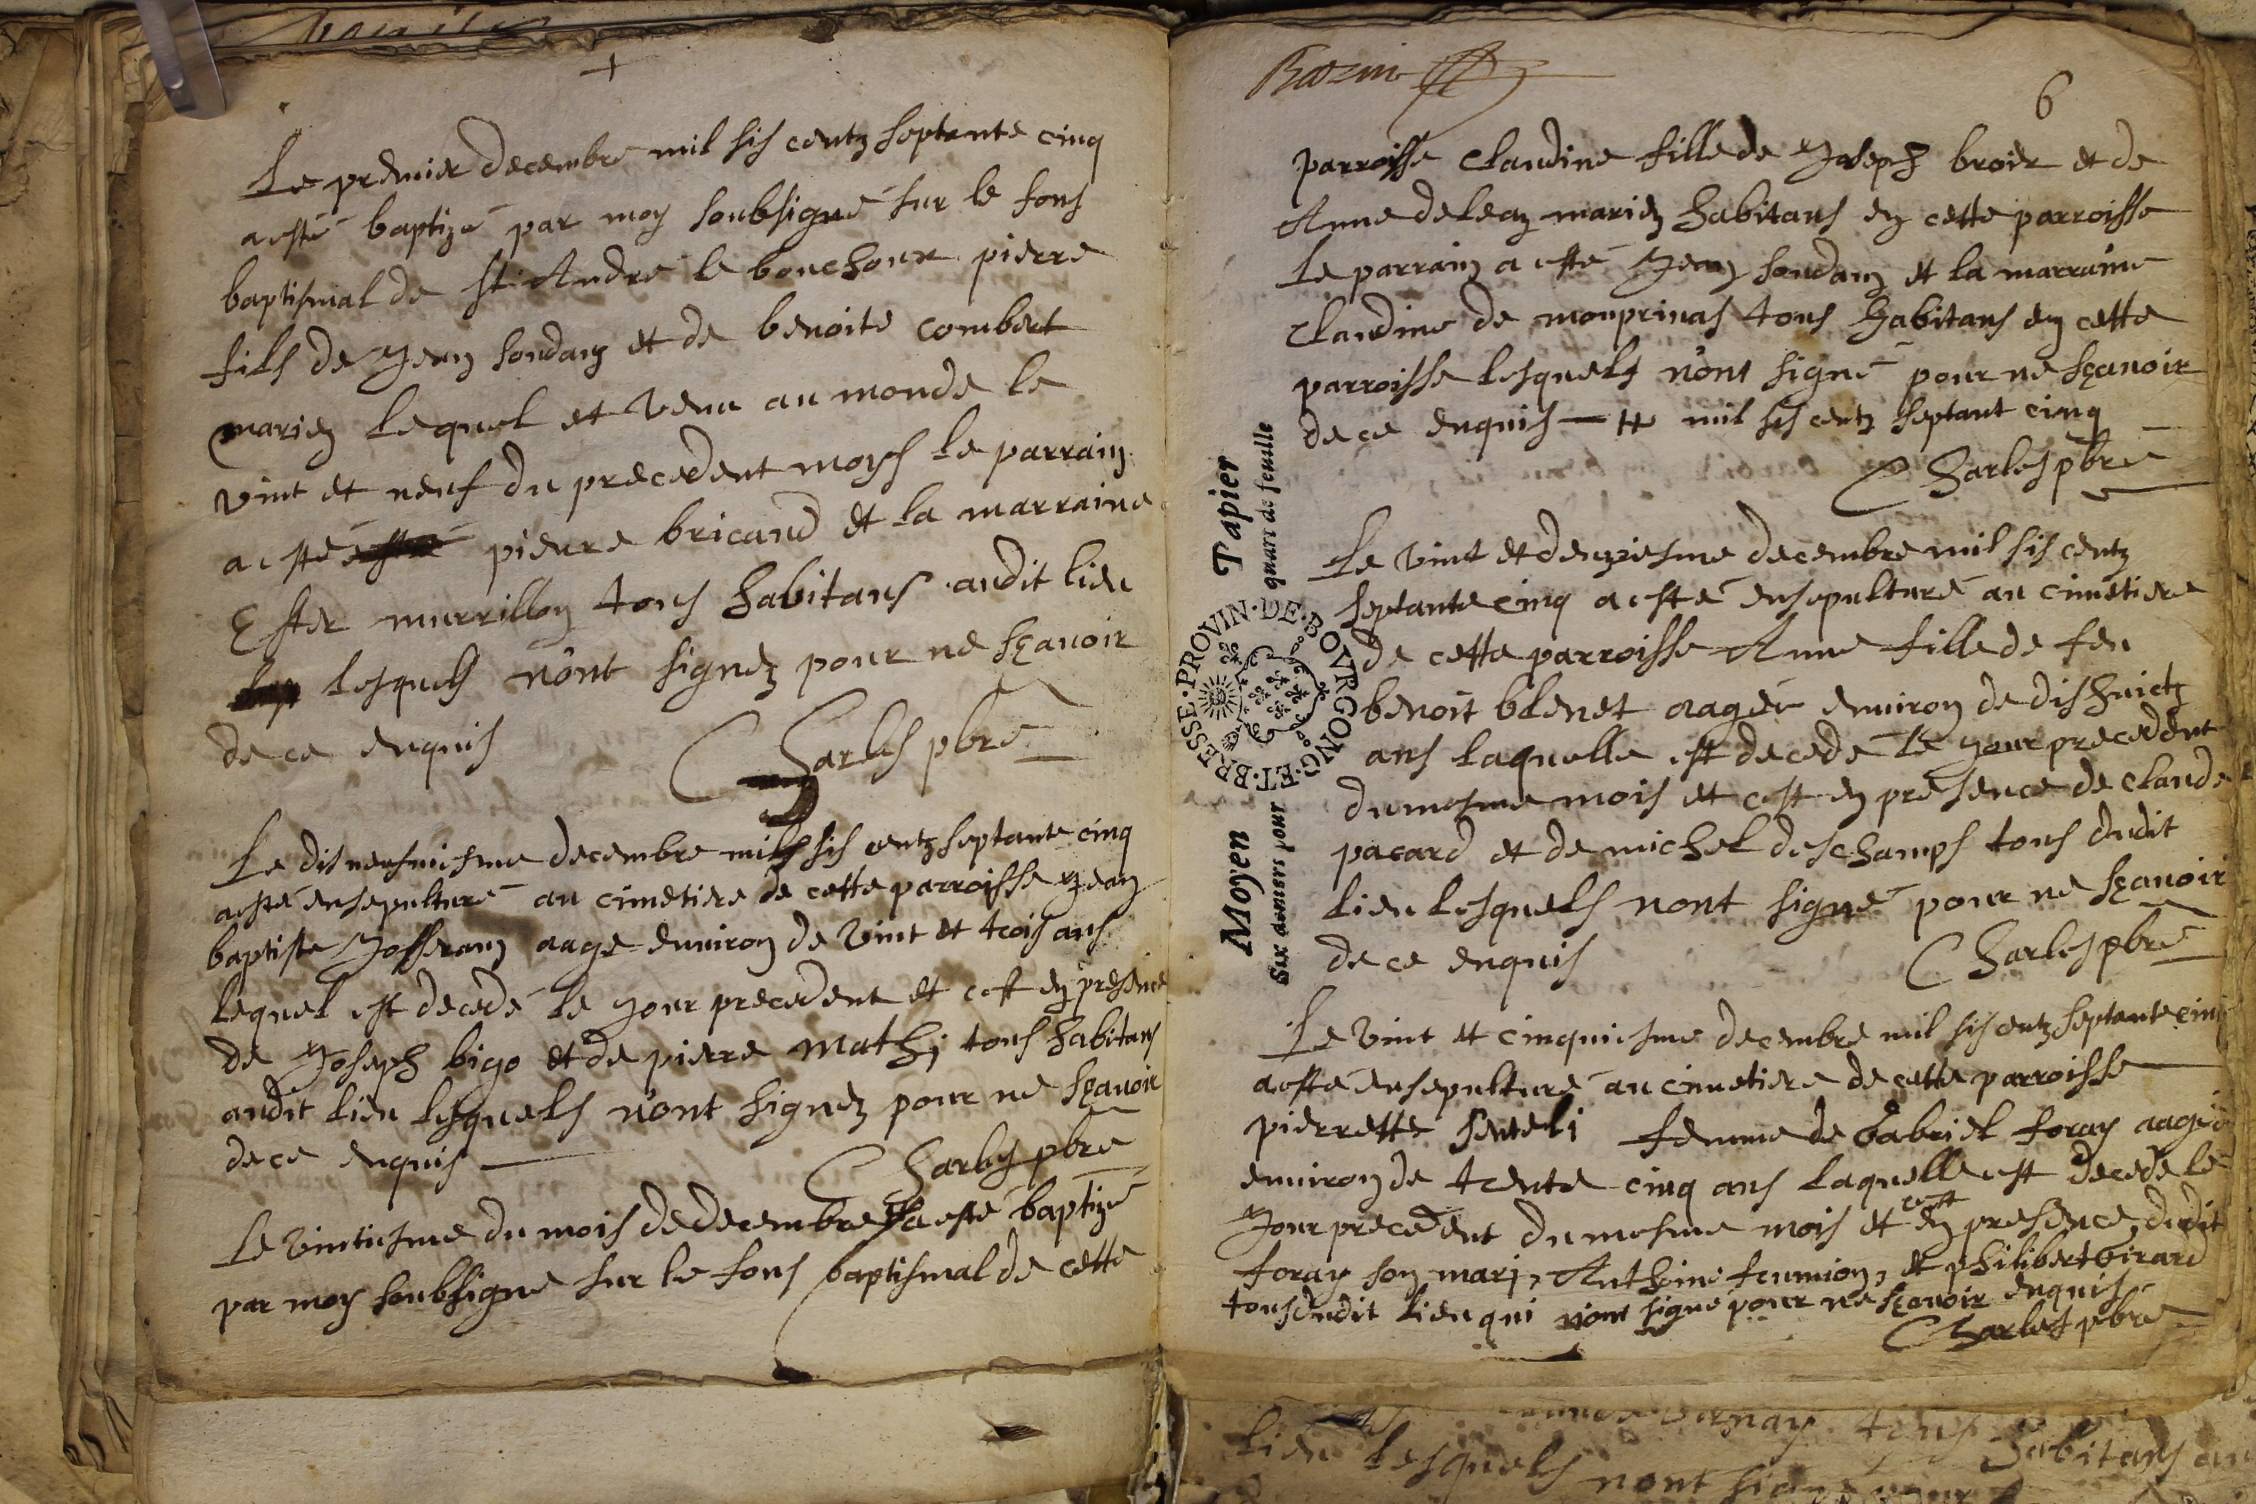 Le premier decembre mil sis centz septante cinq
a esté baptizé par moy soubsigné sur le fons
baptismal de st Andre le bouchoux pierre
fils de Jean soudan et de benoite combert
mariez lequel et venu au monde le
vint et neuf du precedent moys le parrain
a esté pierre bricaud et la marraine
Ester murrillon tous habitans audit lieu
lesquels n'ont signez pour ne sçavoir
de ce enquis Charles pbre
Le disneufviesme decembre mil sis centz septante cinq
a esté ensepulturé au cimetiere de cette parroisse Jean
baptiste Josseran aagé environ de vint et trois ans
lequel est decedé le jour precedent et cest en presence
de Joseph bigo et de pierre mathj tous habitans
audit lieu lesquels n'ont signez pour ne sçavoir
de ce enquis Charles pbre
Le vintiesme du mois de decembre a esté baptizé
par moy soubsigne sur le fons baptismal de cette
6
parroisse Claudine fille de Joseph broier et de
Anne deleaz mariez habitans en cette parroisse
Le parrain a esté Jean soudan et la marraine
Claudine de monprinas tous habitans en cette
parroisse lesquels n'ont signé pour ne sçavoir
de ce enquis mil sis centz septant cinq
Charles pbre
Moyen Papier
Six deniers pour quart de feuille
PROVIN·DE·BOVRGONG·ET·BRESSE·
Le vint et deuziesme decembre mil sis centz
septante cinq a esté ensepulturé au cimetiere
de cette parroisse Anne fille de feu
benoit blenet aagée environ de dishuictz
ans laquelle est decedé le jour precedent
du mesme mois et cest en presence de claude
pacard et de michel deschamps tous dudit
lieu lesquels n'ont signé pour ne sçavoir
de ce enquis Charles pbre
Le vint et cinquiesme decembre mil sis centz septante cinq
a esté ensepulturé au cimetiere de cette parroisse
pierrette femme de Gabriel foray aagée
environ de trente cinq ans laquelle est decedé le
Jour precedent du mesme mois et cest en presence dudit
foray son mary, Anthoine et philibert Girard
tous dudit lieu qui n'ont signé pour ne sçavoir enquis
Charles pbre
lieu lesquels n'ont habitans au